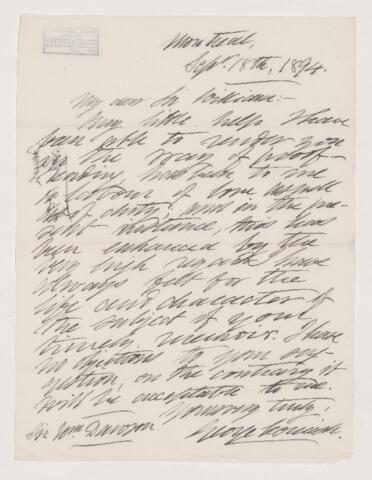 Montreal,
Sept 18th, 1894.
My dear Sir William:-
Any little help I have
been able to render you
in the way of proof-
reading has been to me
a labour of love as well
as of duty, and in the pre-
sent instance, this has
been enhanced by the
very high regard I have
always felt for the
life and character of
the subject of your
timely memoir. I have
no objections to your
on the contrary it
will be acceptable to me.
Yours very truly,
George Cornish.
Sir Wm Dawson.